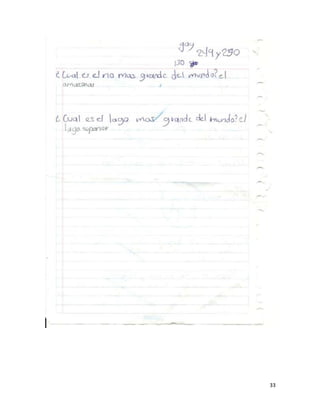 249 y 250
¿Cual es el rio mas grande del mundo? el
amazonas
¿Cual es el lago mas grande del mundo? el
lago superior
33